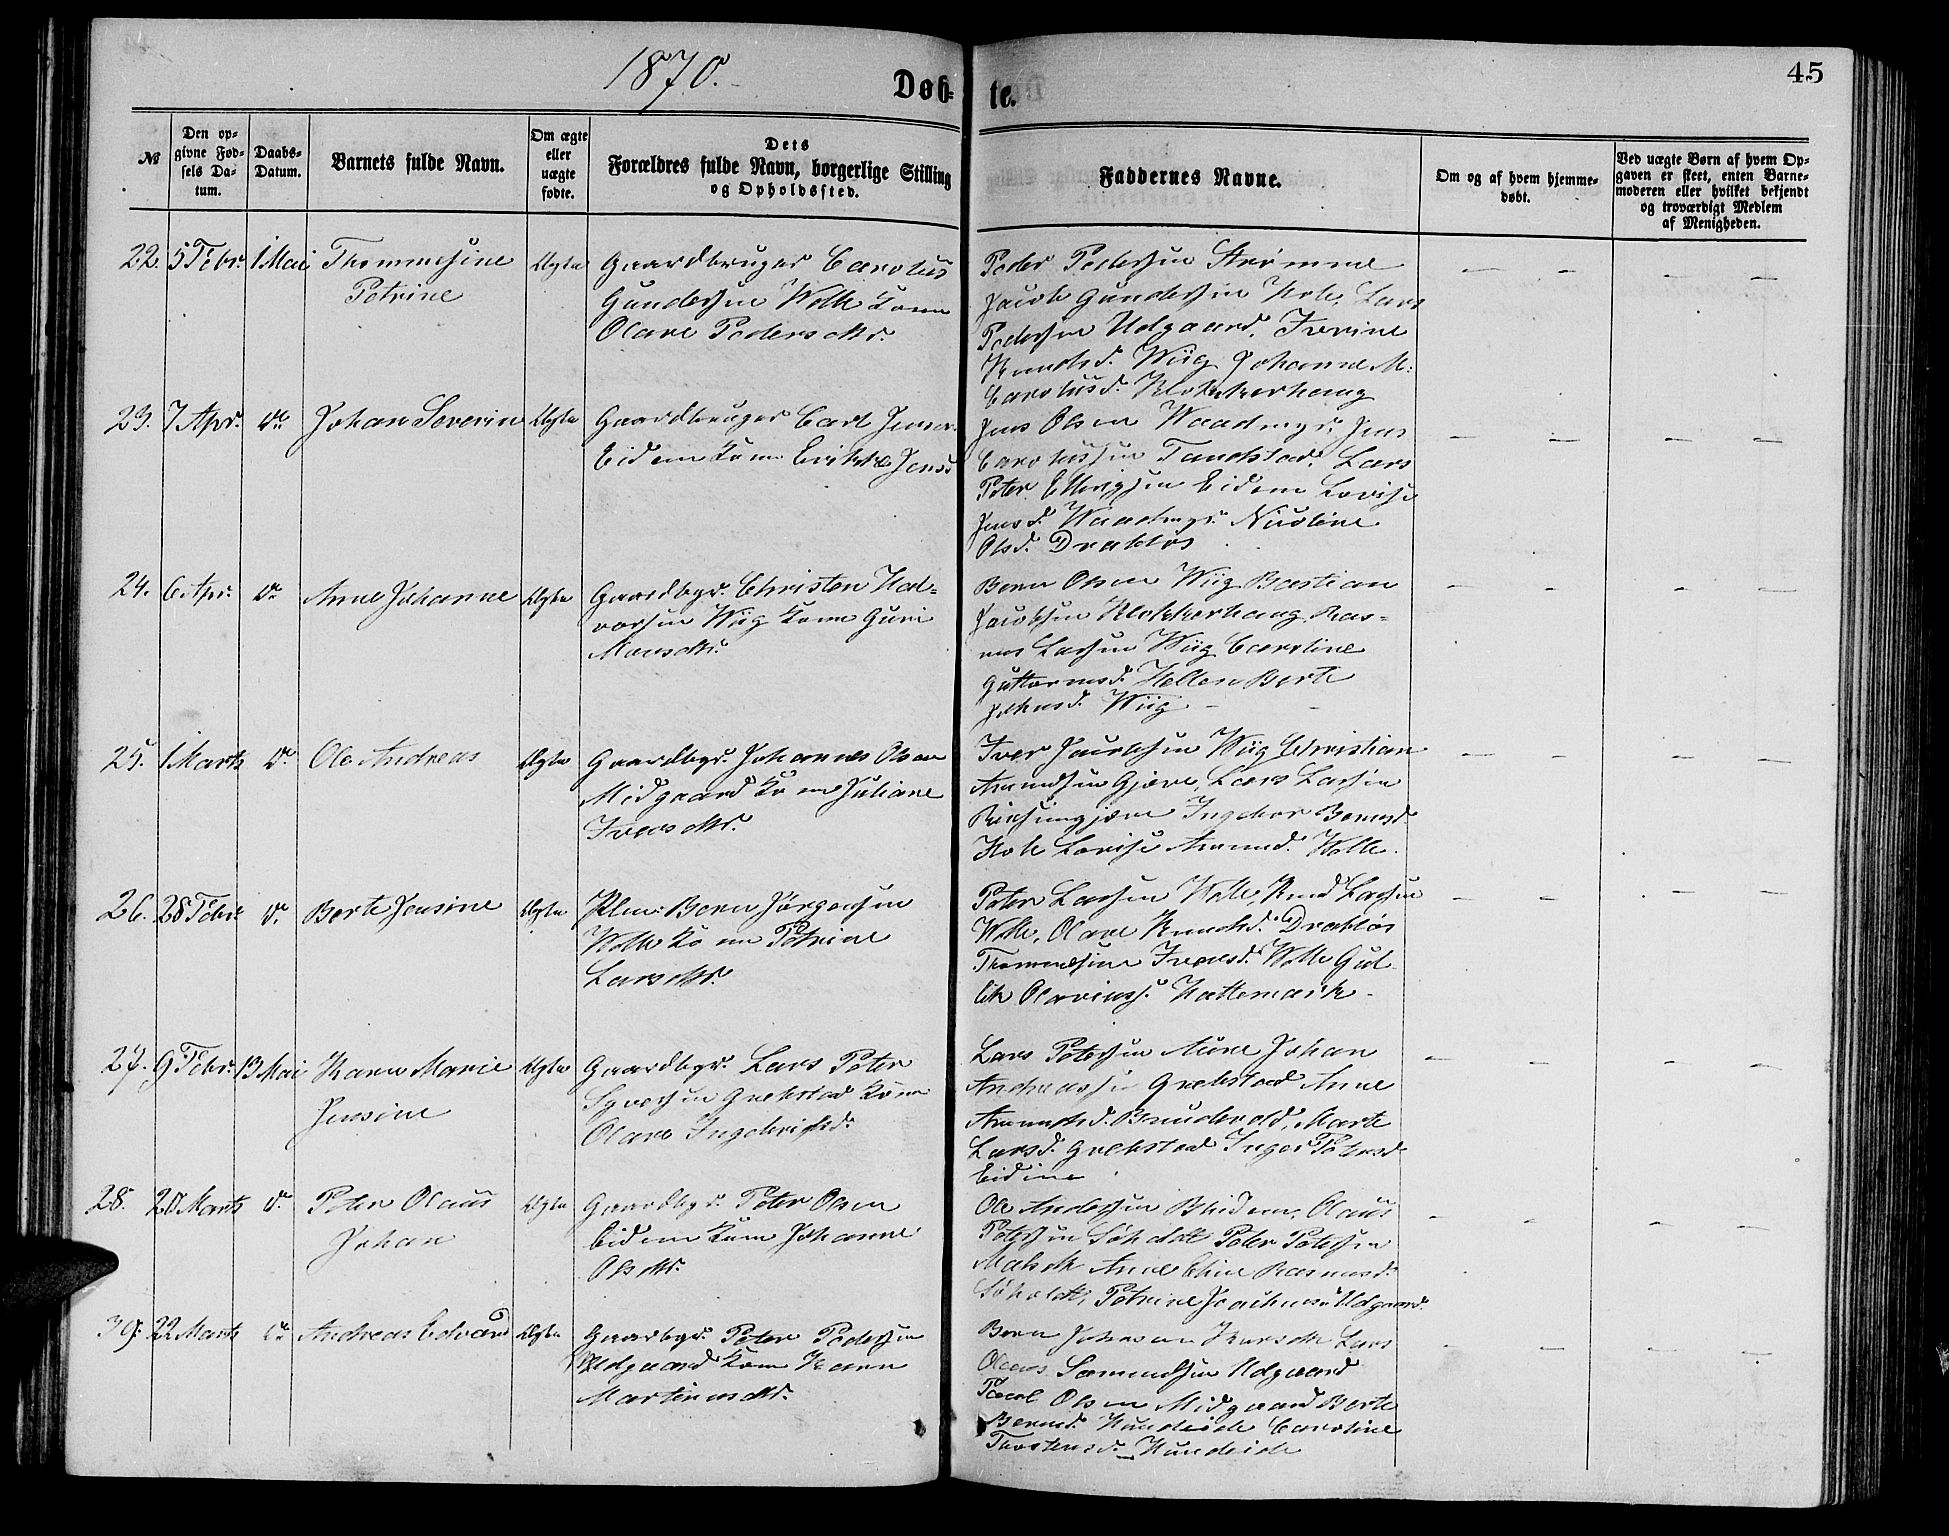 1870.
Døb=
te.
45
№
Den op=
givne Fød=
sels Da=
tum.
Daabs=
Datum.
Barnets fulde Navn.
Om ægte
eller
uægte
fødte.
Dets
Forældres fulde Navn, borgerlige Stilling
og Opholdssted.
Faddernes Navne.
Om og af hvem hjemme=
døbt.
Ved uægte Børn af hvem Op=
gaven er skeet, enten Barne=
moderen eller hvilket bekjendt
og troværdigt Medlem
af Menigheden.
22. 5 Febr. 1 Mai Thommesine Ægte Gaardbruger Carolus
Petrine Gundersen Wolle Kone
Olave Pedersdtr.
Peder Pedersen Strømme
Jacob Gundersen Hole, Lars
Pedersen Udgaard, Iverine
Knudsd. Wiig Johanne M.
Carolusd. Klokkerhaug
23. 7 Apr. do Johan Severin Ægte Gaardbruger Carl Jensen
Eidem Kone Erikke Jensd
Jens Olsen Jens
Carolussen Tandstad, Lars
Peter Ellingsen Eidem Lovise
Jensd. Nicoline
Olsd. Drabløs
24. 6 Apr. do Anne Johanne Ægte Gaardbgr. Christen Hal=
vorsen Wiig Kone Guri
Monsdtr.
Bern Olsen Wiig Bastian
Jacobsen Klokkerhaug Ras=
mus Larsen Wiig Caroline
Guttormsd. Hellen Berte
Johnsd. Wiig
25. 1 Marts do Ole Andreas Ægte Gaardbgr. Johannes Olsen
Midgaard Kone Juliane
Iversdtr.
Iver Jacobsen Wiig Christian
Amundsen Gjære, Lars Larsen
Ingebor Bernsd.
Hole Lovise Amund. Wolle.
26. 28 Febr. do Berte Jensine Ægte Bern Jørgensen
Wolle Kone Petrine
Larsdtr.
Peter Larsen Wolle, Knud Larsen
Wolle, Olave Knudsd. Drabløs
Thommesine Iversd. Wolle Gul=
lik Olavius. Hattemark
27. 9 Febr. 13 Mai Karen Marie Ægte Gaardbgr. Lars Peter
Jensine Syversen Grebstad Kone
Olave Ingebrigtsd.
Lars Petersen Aure Johan
Andreassen Grebstad Anne
Amundsd. Brudevold, Marte
Larsd. Grebstad Inger Petersd
Eidem
28. 20 Marts do Peter Olaus Ægte Gaardbgr. Peter Olsen
Johan Eidem Kone Johanne
Olsdtr.
Ole Andersen Olaus
Petersen Søholdt Peter Petersen
Anne Rasmusd.
Søholdt, Petrine Udgaard.
39. 22 Marts do Andreas Edvard Ægte Gaarbgr. Peter Pedersen
Udgaard Kone Karen
Martinusdtr.
Bern Johnsen Lars
Olaus Samundsen Udgaard
Olsen Midgaard Berte
Bernsd. Hundeide Caroline
Torstensd. Hundeide